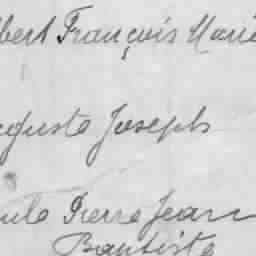 lbert François Marie
uguste Joseph
ule Pierre Jean
Baptiste